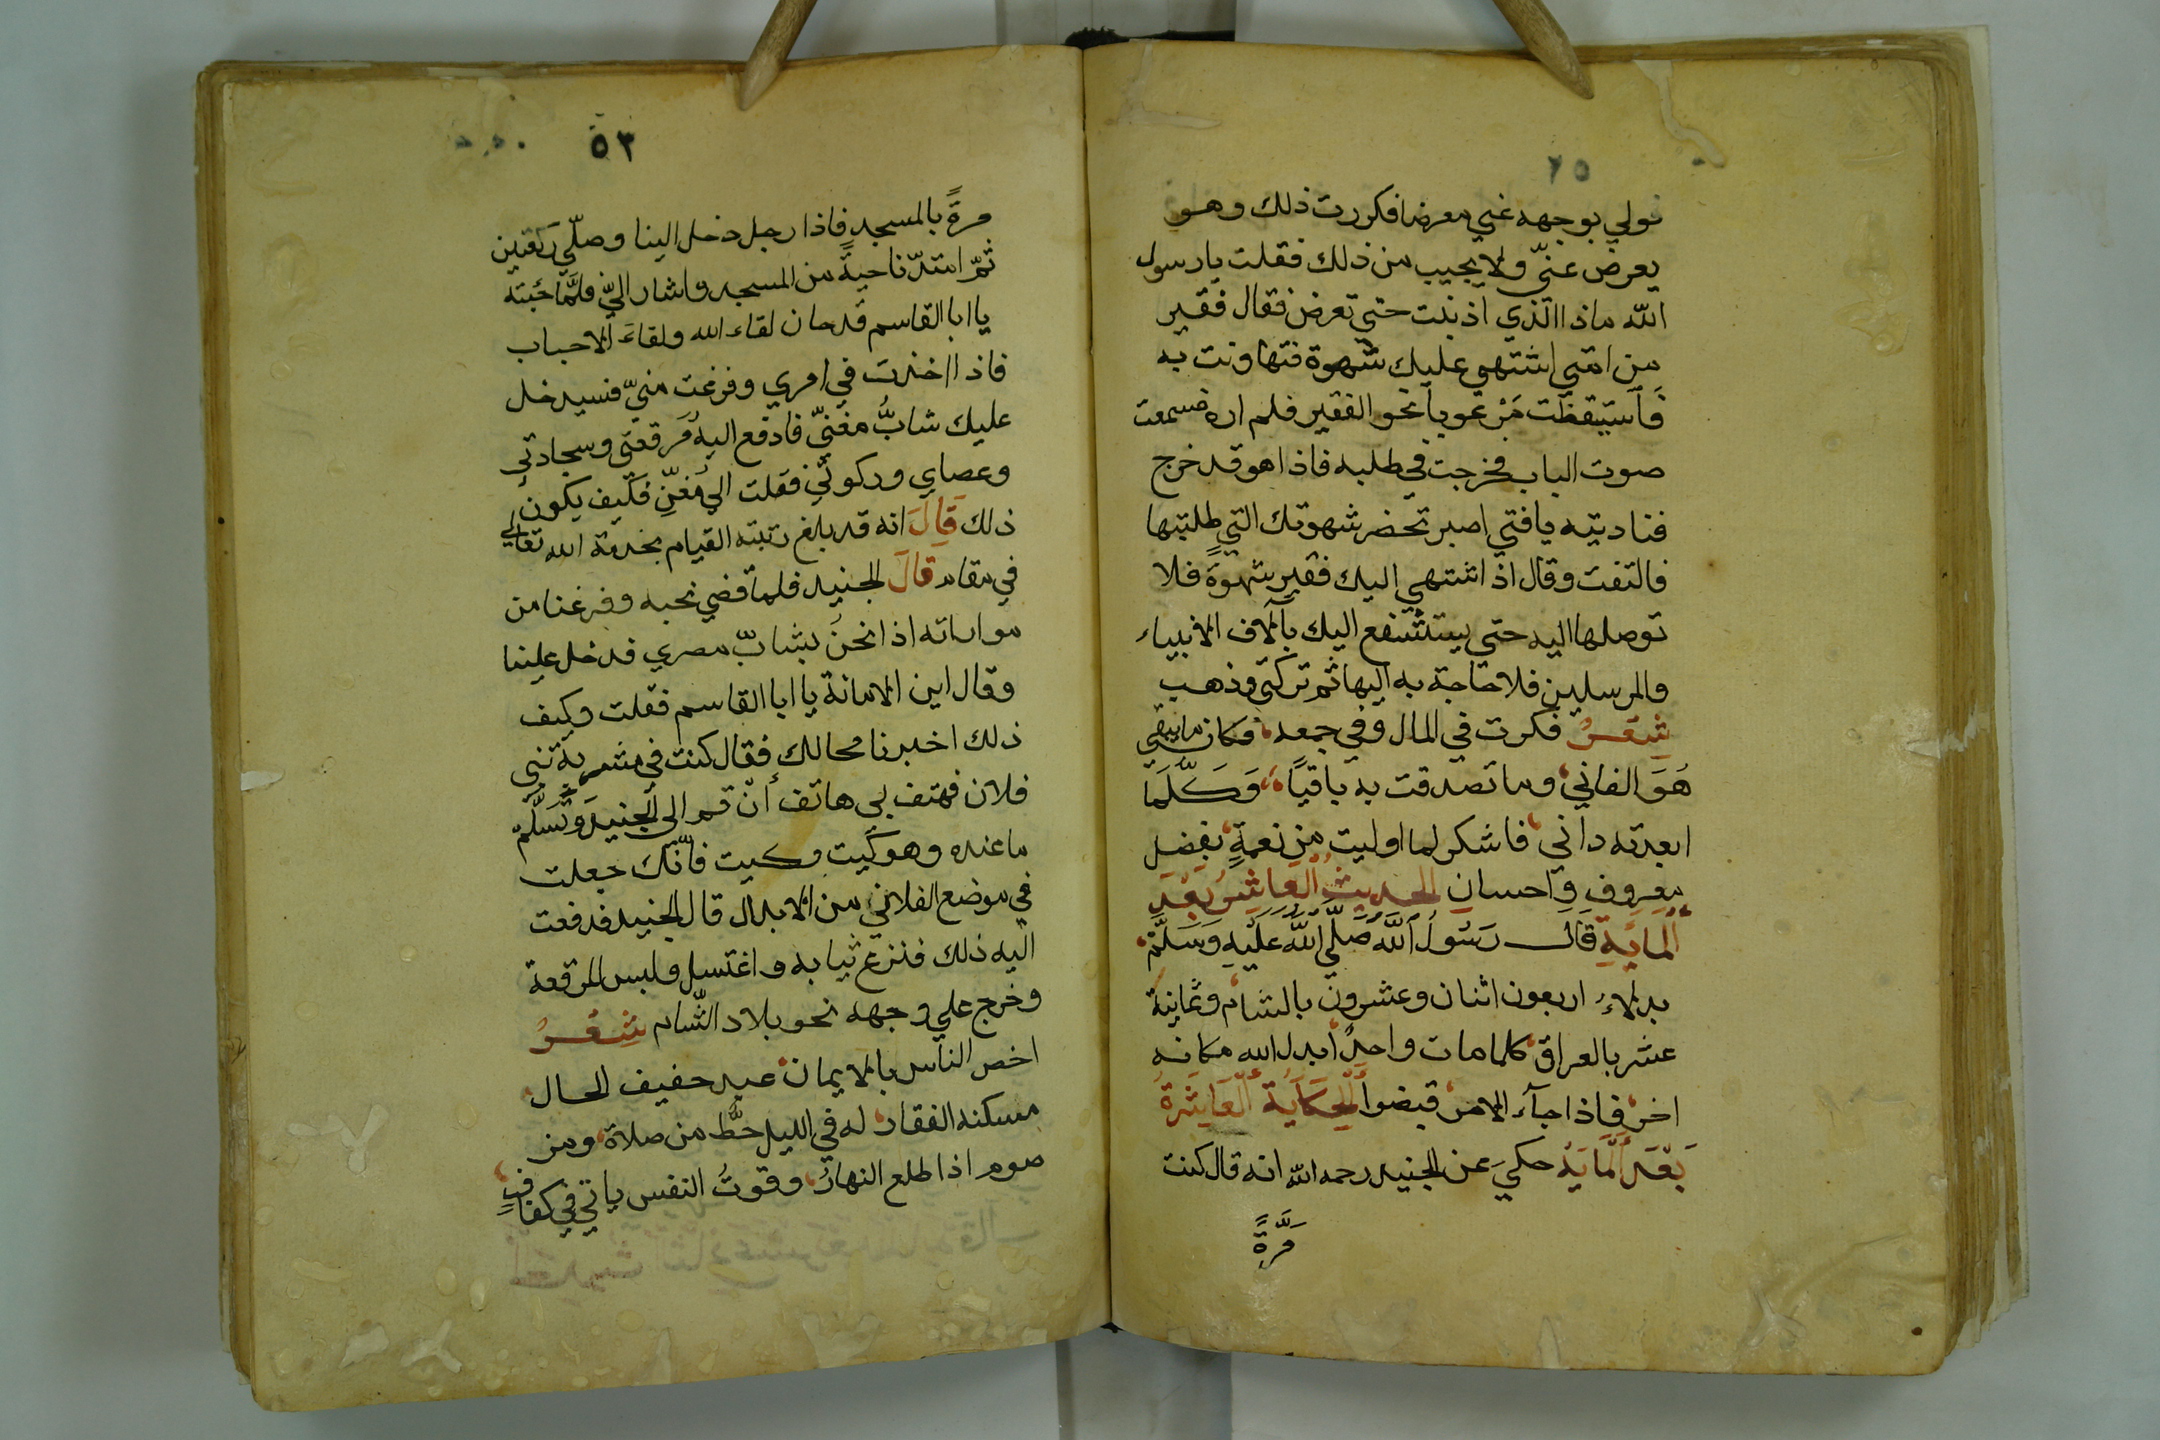 ٢٥
تولي بوجهه عني معرضا فكررت ذلك وهو
يعرض عنّي ولا يجيب من ذلك فقلت يا رسول
الله ماذا الذي اذنبت حتي تعرض فقال فقير
من امتي اشتهي عليك شهوة فتهاونت به
فَاستيقظت مَرْعوبا نحو الفقير فلم اره فسمعت
صوت الباب فخرجت في طلبه فاذا هو قد خرج
فناديته يا فتي اصبر تحضر شهوتك التي طلبتها
فالتفت وقال اذا اشتهي اليك فقير شهوةً فلا
توصلها اليه حتي يستشفع اليك بآلاف الانبياء
والمرسلين فلا حاجة به اليها ثم تركني وذهب
شِعْرُ فكرت في المال وفي جمعه، فكان ما يبقي
هُوَ الفاني، وما تصدقت به باقيًا، وَكلَّمَا
ابعدته داني، فاشكر لما اوليت من نعمةٍ، بفضل
معروفٍ وَاحسان الحديثُ الْعَاشِرُ بَعْدَ
الْمائِةِ قَالَ رَسُولُ اللَّهِ صَلَّي اللَّهُ عَلَيْهِ وَسَلَّمَ
بدلاءُ اربعون اثنان وعشرون بالشام وثمانية
عشر بالعراق كلما مات واحدٌ ابدل الله مكانه
اخر، فاذا جآء الامر، قبضوا الْحِكَايَةُ الْعَاشِرَةُ
بَعْدَ الْمَايَةِ حكيَ عن الجنيد رحمه الله انه قال كنت
مَرَّةً
٥٣
مرةً بالمسجد فاذا رجل دخل الينا وصلّي ركعتين
ثمّ امتدّ ناحيةً من المسجد واشار اليّ فلمَّا جُبته
يا ابا القاسم قد حان لقاء الله ولقاءَ الاحباب
فاذا اخذت في امري وفرغت منيّ فسيدخل
عليك شابٌّ مغنّي فادفع اليه مَرقعتي وسجادتي
وعصاي وركوتي فقلت الي مغنّ فكيف يكون
ذلك قَالَ انه قد بلغ رتبته القيام بخدمة الله تعالي
في مقام قالَ الجنيد فلما قضي نحبه وفرغنا من
مواراته اذا نحنُ بشابّ مصري فدخل علينا
وقال اين الامانة يا ابا القاسم فقلت وكيف
ذلك اخبرنا بحالك فقال كنت في مشربة بني
فلان فهتف بي هاتف أنْ قم الي الجنيد وتسلّم
ما عنده وهو كيت وكيت فانّك جعلت
في موضع الفلاني من الابدال قال الجنيد فدفعت
اليه ذلك فنزع ثيابه واغتسل ولبس المرقعة
وخرج علي وجهه نحو بلاد الشام شِعْرُ
اخص الناس بالايمان عبد خفيف الحال
مسكنه القفار، له في الليل حظٌّ من صلاة، ومن
صوم اذا طلع النهارُ، وقوتُ النفس ياتي في كفافٍ